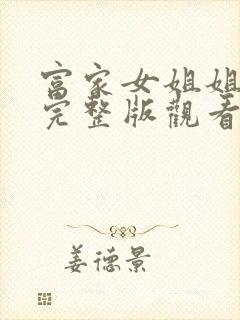 富家女姐姐
完整版觀看
姜德景